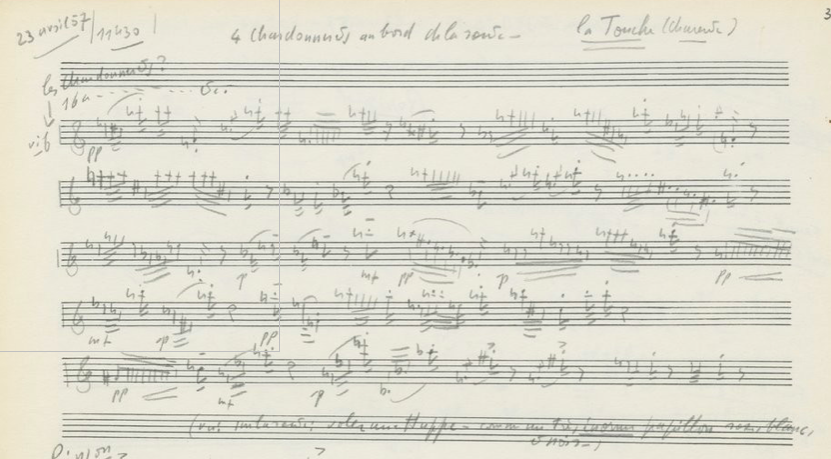 23 avril 57 | 11h30 | 4 Chardonnerets au bord de la route – la Touche (Charente) 3
les chardonnerets ?
16a - - - - - -
vif
pp
p mf pp p pp
mf p pp
pp mf p
(vu sur la route : voler une Huppe – comme un très, énorme papillon rose, blanc,
et noir – )
Pinson ?